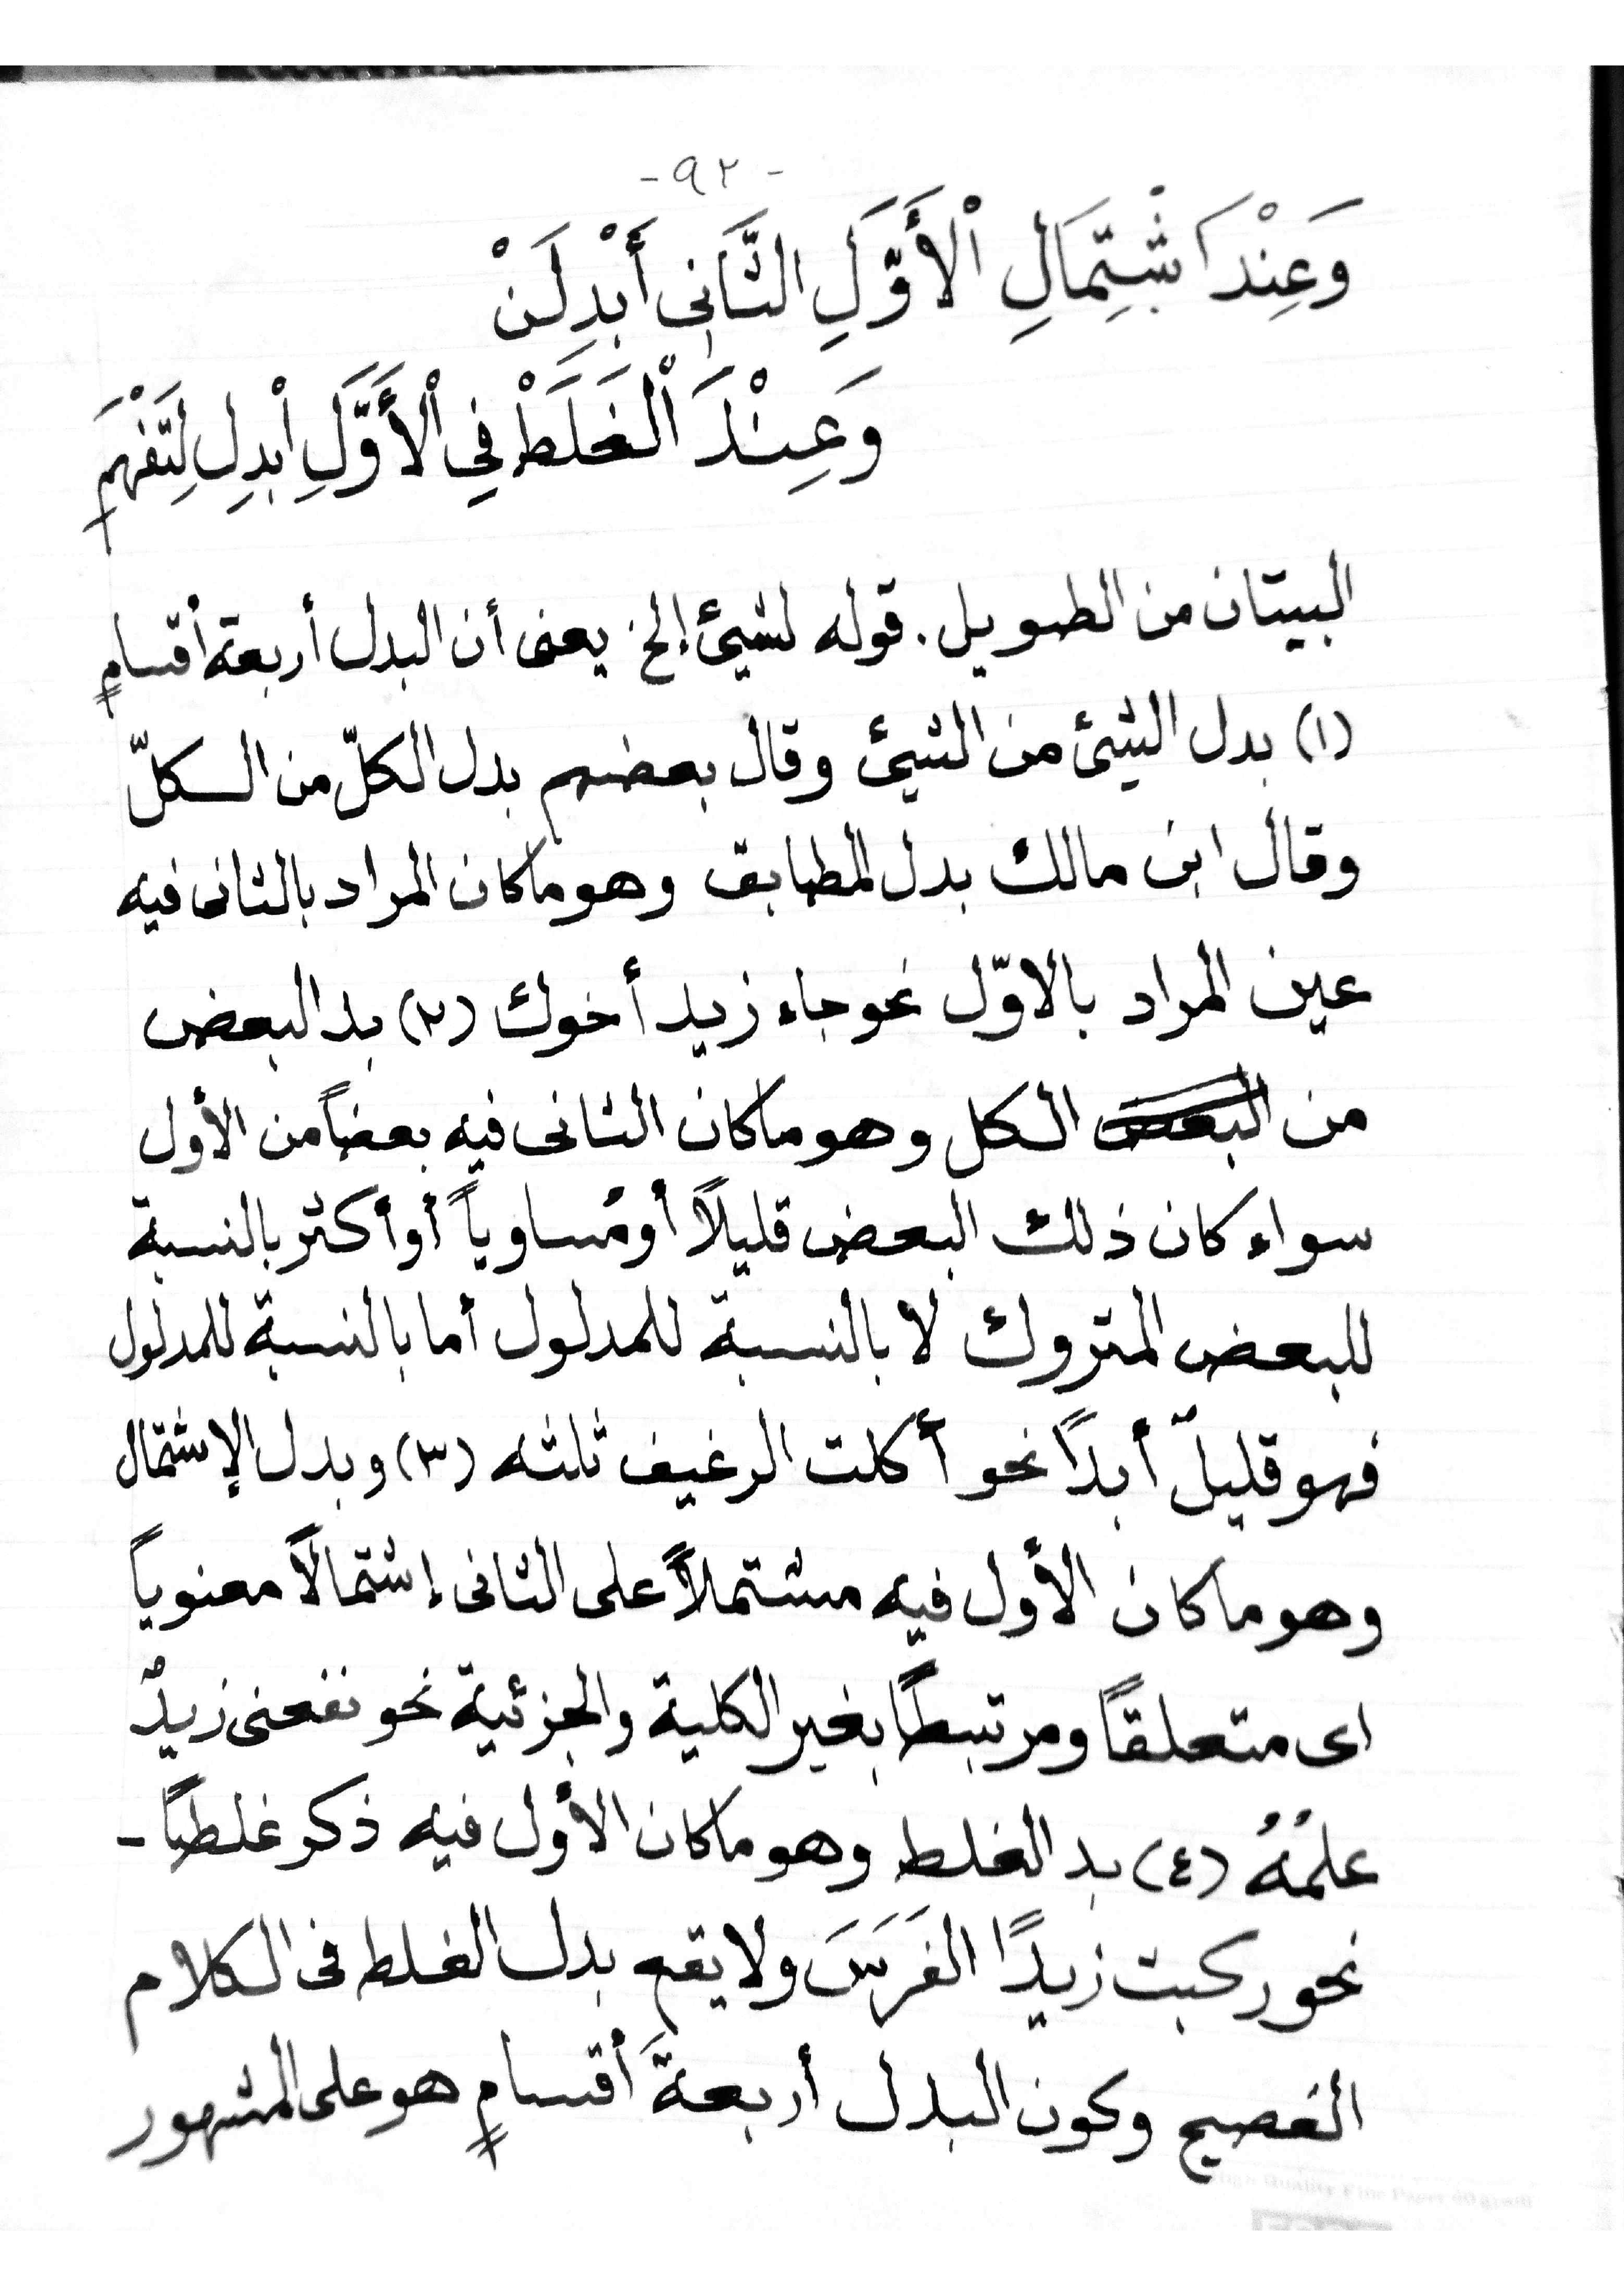 -٩٢-
وَعِنْدَ اشْتِمَالِ الْأَوَّلِ الثَّانِى أَبْدِلَنْ
وَعِنْدَ الْغَلَطْ فِى الْأَوَّلِ ابْدِلِ لِتَفْهَمِ
البيتان من الطويل. قوله لشيئ إلخ يعنى أن البدل أربعة أقسامٍ
(١) بدل الشيئ من الشيئ وقال بعضهم بدل الكلّ من الكلّ
وقال ابن مالك بدل المطابق وهو ماكان المراد بالثانى فيه
عين المراد بالاوّل نحو جاء زيد أخوك (٢) بد البعض
من البعض الكل وهو ماكان الثانى فيه بعضاً من الأول
سواء كان ذلك البعض قليلاً أو مُساوياً أو أكثر بالنسبة
للبعض المتروك لا بالنسبة للمدلول أما بالنسبة للمدلول
فهو قليلٌ أبدًا نحو أكلت الرغيف ثلثه (٣) وبدل الإشتمال
وهو ماكان الأول فيه مشتملاً على الثانى إشتمالاً معنوياً
اى متعلقاً ومرتبطاً بغير الكلية والجزئية نحو نفعنى زيدٌ
علمُهُ (٤) بد الغلط وهو ماكان الأول فيه ذكر غلطاً -
نحو ركبت زيدًا الفَرَسَ ولا يقع بدل الغلط فى الكلام
الفصيح وكون البدل أربعةَ أقسامٍ هو على المشهور